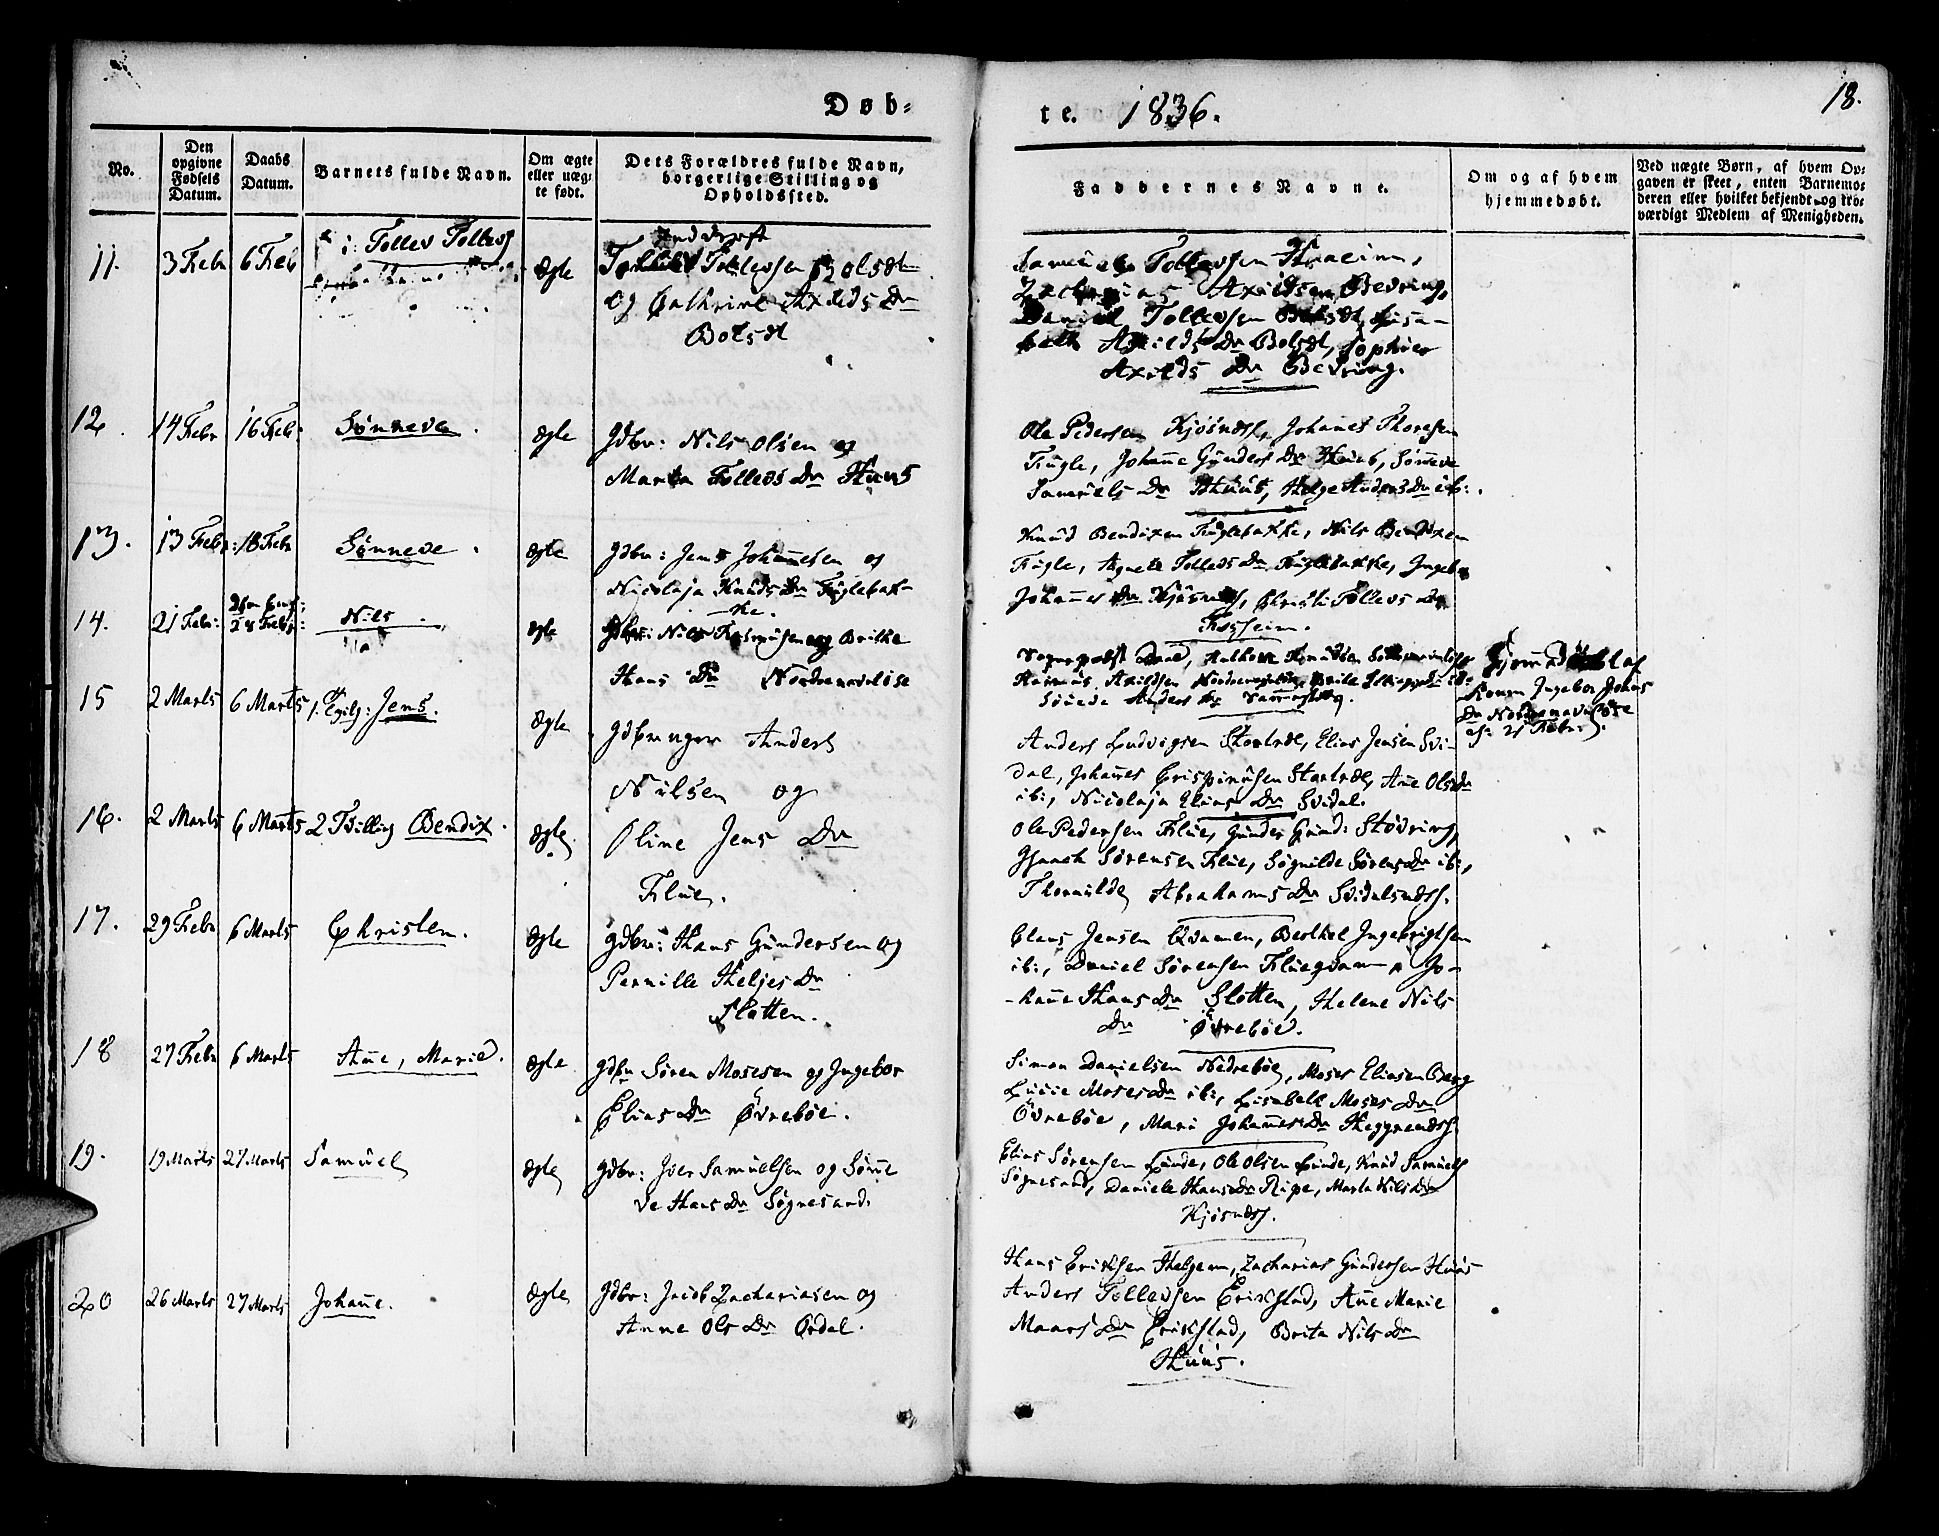 Døb-
te. 1836.
18.
No.
Den opgivne Fødsels Datum.
Daabs Datum.
Barnets fulde Navn.
Om ægte eller uæg-te født.
Dets Forældres fulde Navn, borgerlige Stilling og Opholdssted.
Faddernes Navne.
Om og af hvem hjemmedøbt.
Ved uægte Børn, af hvem Op-gaven er skeet, enten Barnemo-deren eller hvilket bekjendt og tro-værdigt Medlem af Menigheden.
11. 3 Febr 6 Feb Tollev Tollevs
Ægte
Tollevsen Bolsæt
og Cathrine Axelds Dr
Bolsæt
Tollevsen
Axeldsen Bedring,
Daniel Tollevsen Bolsæt, Lisa-
beth Axelds Dr Bolsæt, Sophie
Axelds Dr Bedring.
12. 14 Febr 16 Feb: Sønneve. Ægte
Gdbr: Nils Olsen og
Marta Tolleds Dr Huus
Ole Pedersen Kjøsnæss, Johanes Thoresen
Fugle, Johanne Gunders Dr Huus, Sønneve
Samuels Dr Huus, Helge Anders Dr ib:.
13. 13 Feb: 18 Febr Sønneve. Ægte
Gdbr: Jens Johannesen og
Nicolaja Knuds Dr Fuglebak-
ke.
Knud Bendixen Fuglebakke, Nils Bendixen
Fugle, Agnete Tolleds Dr Fuglebakke, Ingebor
Johannes Dr Kjøsnæss, Christi Tollevs Dr
Fosheim.
14. 21 Febr: 28 Feb: Nils. Ægte
Gdbr: Nils Rasmusen og Brithe
Hans Dr Nordrenavløse
Sogneprest Daae,
Rasmus Axeldsen
Anders Dr
Hjemmedøbt af
Konen Ingebor Johans
Dr Nordrenavløse
15 2 Marts 6 Marts 1. Tvilg: Jens. Ægte
Gdbruger Anders
Nilsen og
Anders Ludvigsen Stortræe, Elias Jensen Svi-
dal, Johannes Crispinusen Stortræe, Anne Ols Dr
ib:, Nicolaja Elias Dr Svidal.
16. 2 Marts 6 Marts 2 Tvilling Bendix. Ægte
Oline Jens Dr
Flue.
Ole Pedersen Flue, Gunder Gund: Støvring,
Gjaest Sørensen Flue, Søgnilde Sørens Dr ib:,
Thornilde Abrahams Dr Svidalsnæss.
17. 29 Febr 6 Marts Christen. Ægte
Gdbr: Hans Gundersen og
Pernille Heljes Dr
Slotten.
Claus Jensen Qvamen, Berthel Ingebrigtsen
ib:, Daniel Sørensen Fluegdam, Jo-
hanne Hans Dr Slotten, Helene Nils
Dr Øvrebøe.
18 27 Febr 6 Marts Anne, Marie. Ægte
Gdbr Søren Mosesen og Ingebor
Elias Dr Øvrebøe.
Simon Danielsen Nedrebøe, Moses Eliasen Berg
Lucie Moses Dr ib:, Lisabeth Moses Dr
Øvrebøe, Mari Johannes Dr Heggrenæss.
19. 19 Marts 27 Marts Samuel Ægte
Gdbr: Iver Samuelsen og Sønne
ve Hans Dr Søgnesand.
Elias Sørensen Lunde, Ole Olsen Lunde, Knud Samuels
Søgnesand, Daniele Hans Dr Ripe, Marta Nils Dr
Kjøsnæss.
20 26 Marts 27 Marts Johanne. Ægte
Gdbr: Jacob Zachariasen og
Anne Ols Dr Ørdal.
Hans Ericksen Helgeim, Zacharias Gundersen Huus
Anders Tolleusen Erickstad, Anne Marie
Maars Dr Erickstad, Brita Nils Dr
Huus.